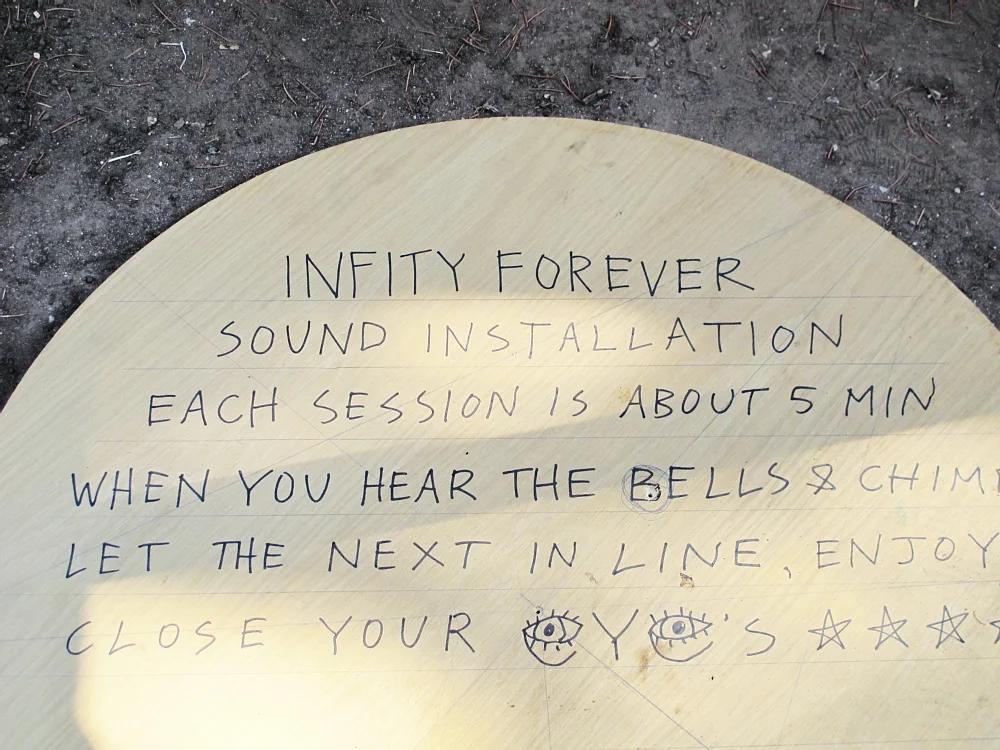 INFITY FOREVER
SOUND INSTALLATION
EACH SESSION IS ABOUT 5 MIN
WHEN YOU HEAR THE BELLS & CHIM
LET THE NEXT IN LINE, ENJOY
CLOSE YOUR EYE'S ☆☆☆